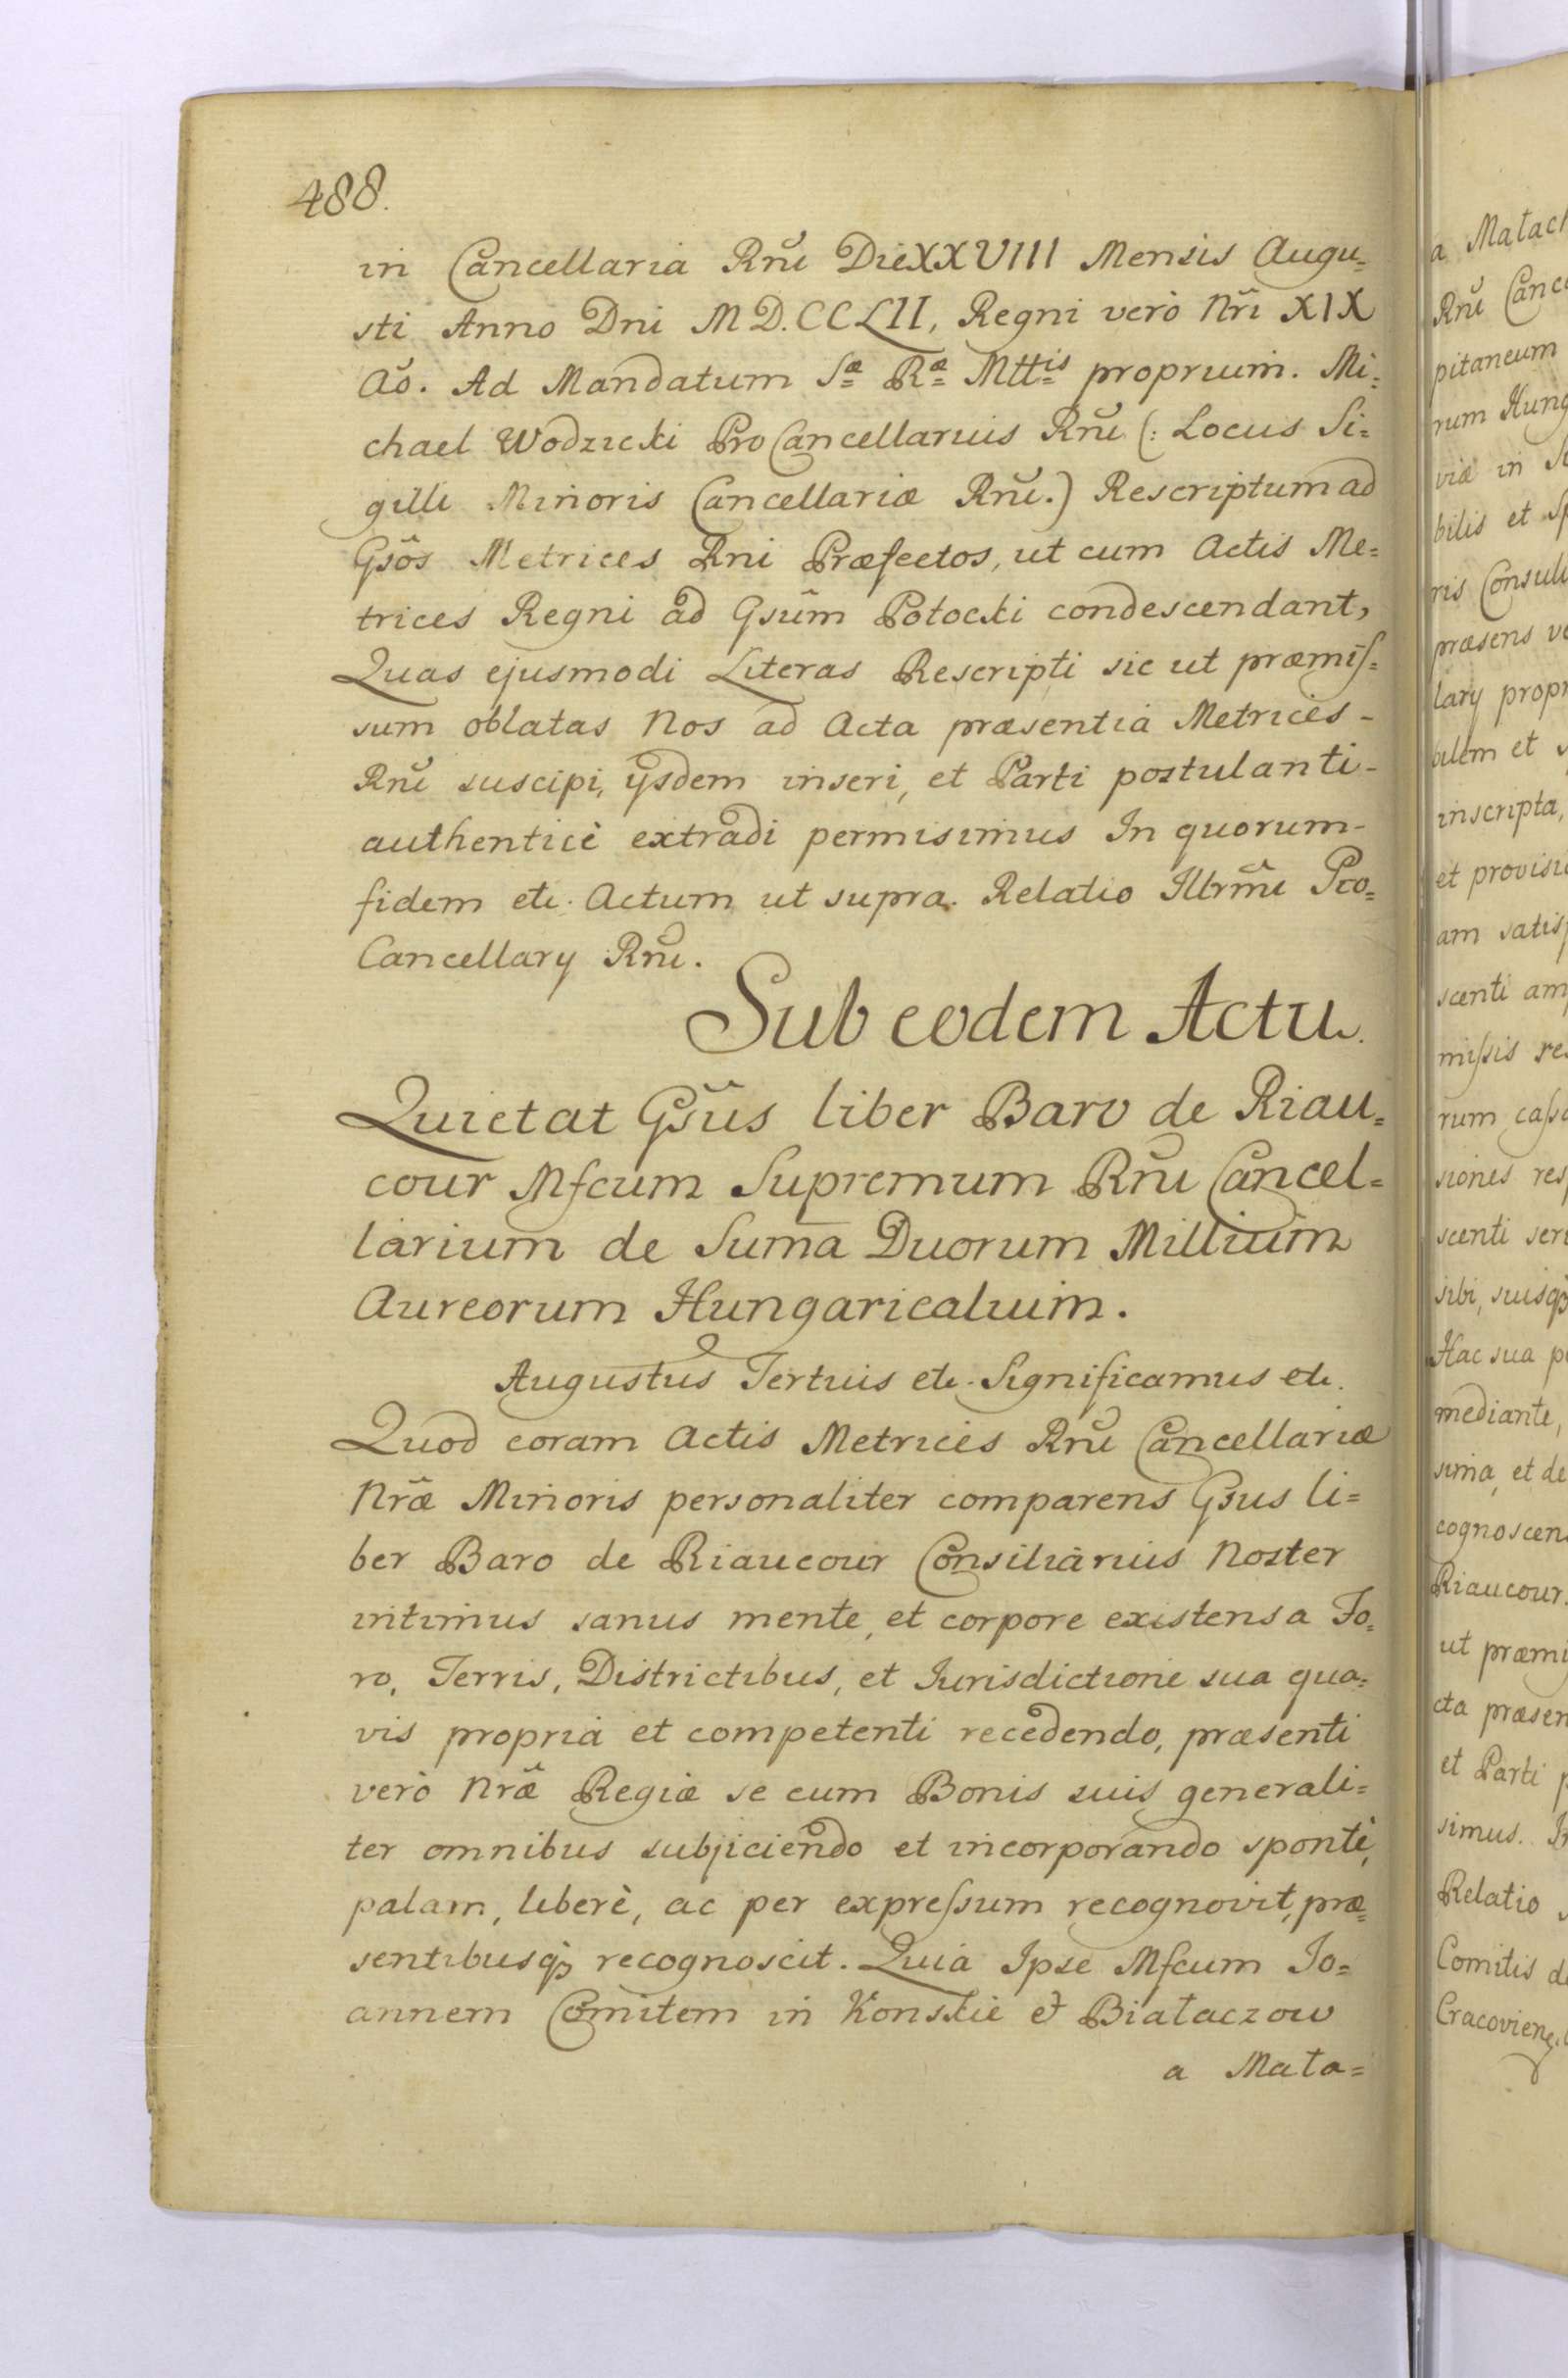 488.
in Cancellaria Rñi Die XXVIII Mensis Augu=
sti Anno Dni MD.CCLII, Regni verò Nr̃i XIX
Aõ. Ad Mandatum Sæ Ræ Mttis proprium. Mi=
chael Wodzicki ProCancellarius Rñi (: Locus Si=
gilli Minoris Cancellariæ Rñi.) Rescriptum ad
Gsõs Metrices Rni Præfectos, ut cum Actis Me=
trices Regni ad Gsũm Potocki condescendant,
Quas ejusmodi Literas Rescripti sic ut præmis=
sum oblatas Nos ad Acta præsentia Metrices-
Rñi suscipi, ijsdem inseri, et Parti postulanti-
authenticè extradi permisimus In quorum-
fidem etc. Actum ut supra. Relatio Illrm̃i Pro=
Cancellary Rñi.
Sub eodem Actu.
Quietat Gsũs liber Baro de Riau=
cour Mfcum Supremum Rñi Cancel=
larium de Sum̃a Duorum Millium
Aureorum Hungaricalium.
Augustus Tertius etc. Significamus etc.
Quod coram Actis Metrices Rñi Cancellariæ
Nr̃æ Minoris personaliter comparens Gsus li=
ber Baro de Riaucour Consiliarius Noster
intimus sanus mente, et corpore existens a Fo=
ro, Terris, Districtibus, et Iurisdictione sua qua=
vis propria et competenti recedendo, præsenti
verò Nr̃æ Regiæ se cum Bonis suis generali=
ter omnibus subjiciendo et incorporando spontè,
palam, liberè, ac per expressum recognovit, præ=
sentibusq̃ recognoscit. Quia Ipse Mfcum Jo=
annem Comitem in Konskie et Białaczow
a Mała=
a Małach
Rñi Cance
pitaneum
rum Hung
viæ in S
bilis et Sp
ris Consuli
præsens ve
lary propr
bilem et
inscripta,
et provisi
am satisf
scenti am
missis re
rum cassa
siones res
scenti seri
sibi, suisq̃
Hac sua p
mediante,
sima, et de
cognoscen
Riaucour.
ut præmi
cta præsen
et Parti p
simus. In
Relatio
Comitis de
Cracovien